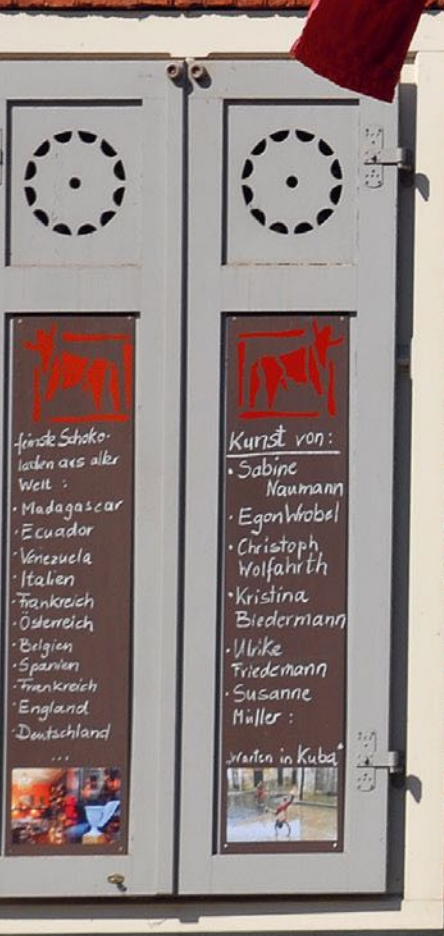 feinste Schoko-
laden aus aller
Welt :
· Madagascar
· Ecuador
· Venezuela
· Italien
· Frankreich
· Österreich
· Belgien
· Spanien
· Frankreich
· England
· Deutschland
...
Kunst von:
· Sabine
Naumann
· Egon Wrobel
· Christoph
Wolfahrth
· Kristina
Biedermann
· Ulrike
Friedemann
· Susanne
Müller :
„Warten in Kuba“